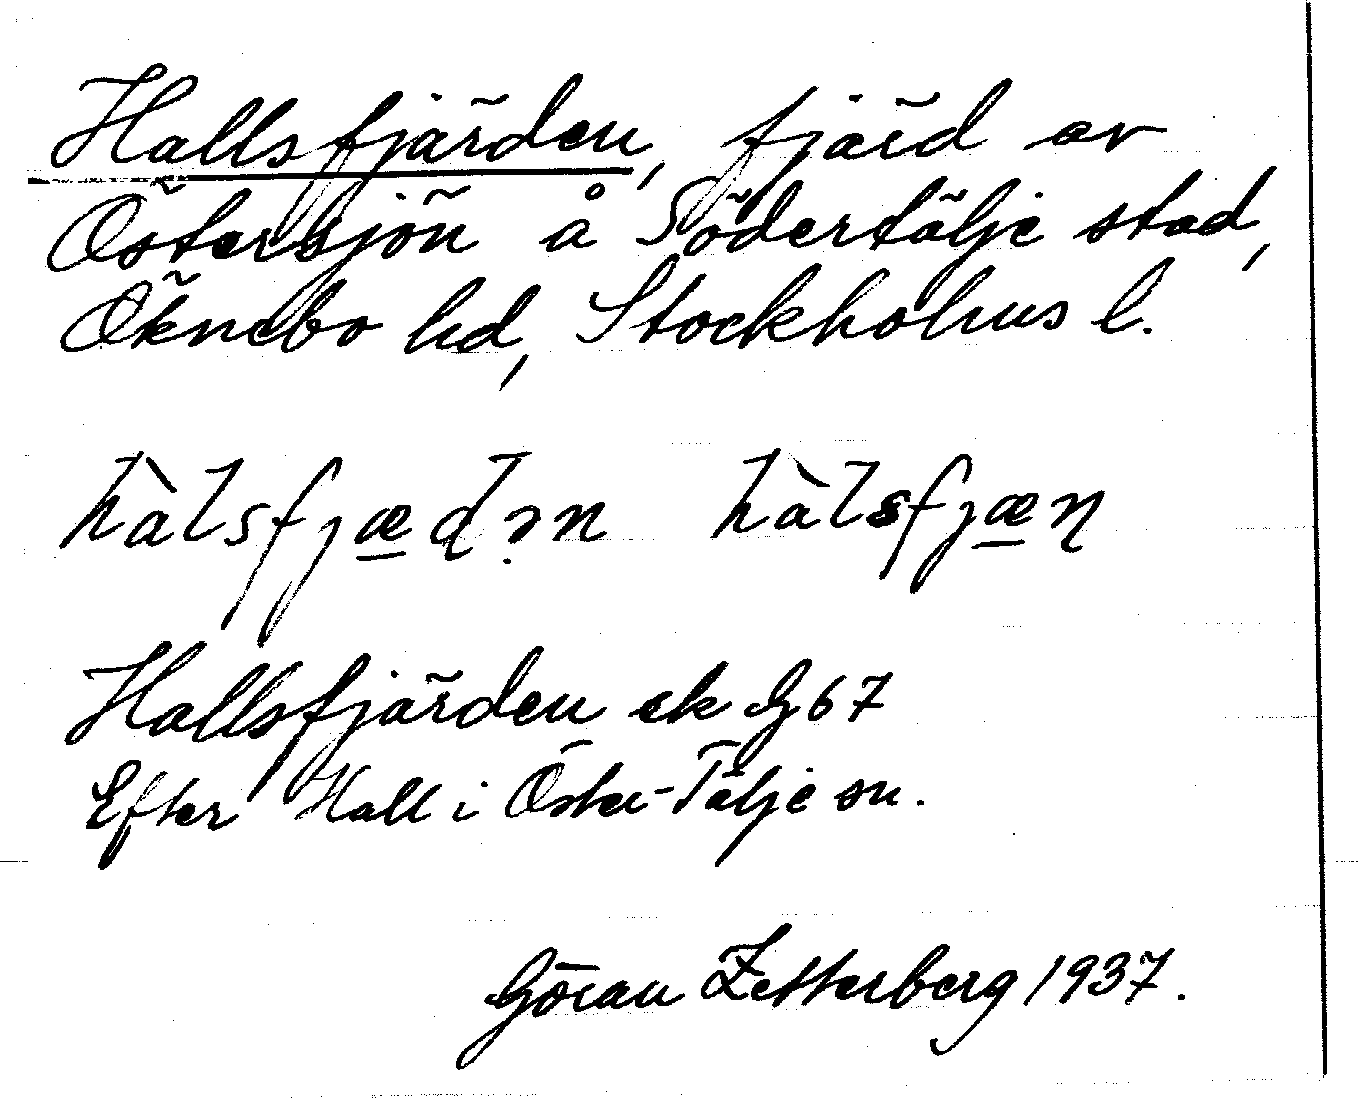 Hallsfjärden, fjärd av
Östersjön å Södertälje stad,
Öknebo hd, Stockholms l.
hàlsfjæḍən hàlsfjæɳ
Hallsfjärden ek G 67
Efter Hall i Öster-Tälje sn.
Göran Zetterberg 1937.